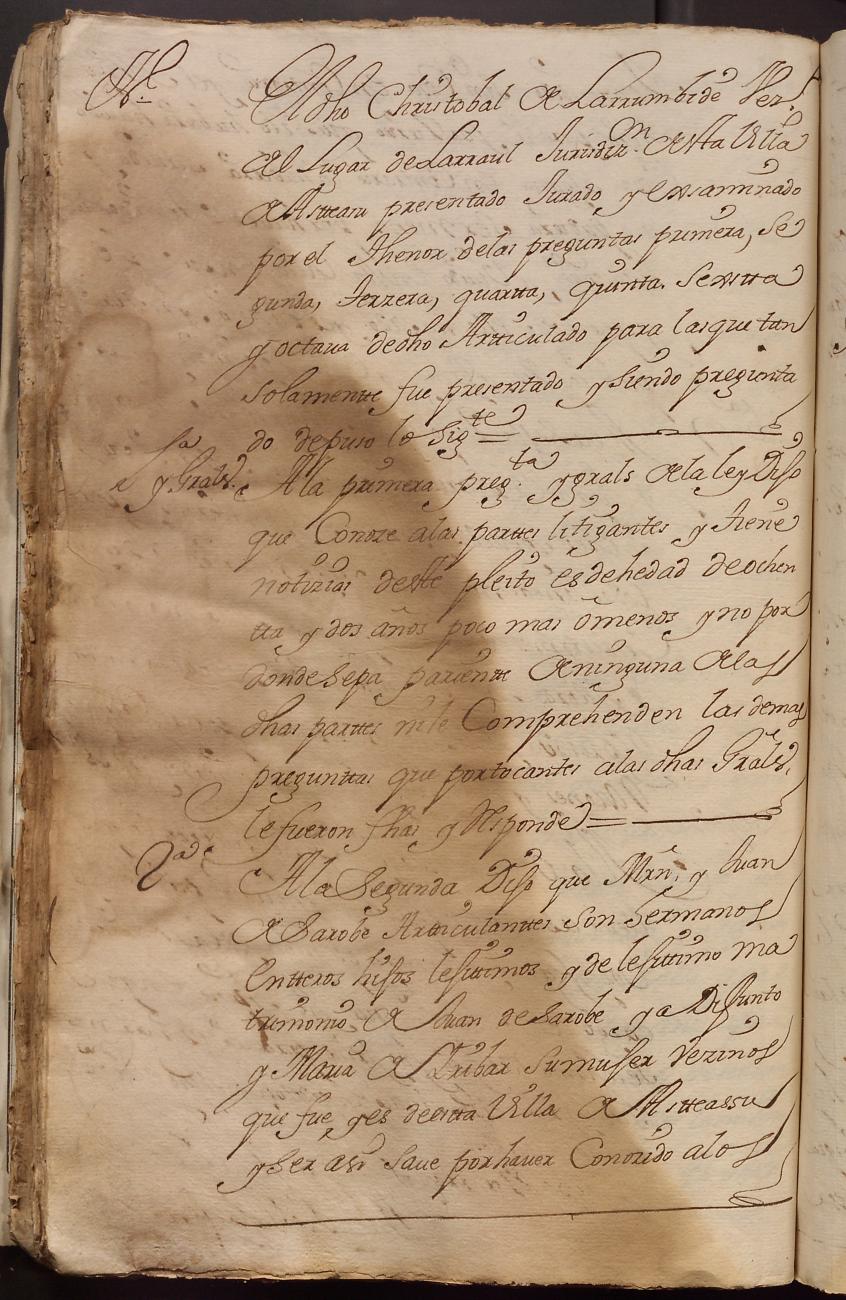 El dho Christobal de Larrumbide Vez.º
del Lugar de Larraul Jurisdiz.on desta Villa
de Astteasu presentado Jurado y Exsaminado
por el Thenor de las preguntas primera, Se
gunda, Terzera, quartta, quinta. Sexstta
y octaua de dho Artticulado para las que tan
solamentte fue presentado y siendo pregunta
do depuso lo Sig.te =
1.a
y Grals. A la primera preg.ta y grals de la ley Dijo
que Conoze a las parttes litigantes y tiene
notizias deste pleito es de hedad de ochen
tta y dos años poco mas ô menos y no por
donde sepa parientte de ninguna de las
dhas parttes ni le Comprehenden las demas
preguntas que por tocantes a las dhas Grales,
le fueron fhas y Responde =
2.da
A la Segunda Dijo que Mrn. y Juan
de Sarobe Artticulanttes Son hermanos
Entteros hijos lejittimos y de lejittimo ma
trimonio de Juan de Sarobe ya Difunto
y Maria de Yribar su mujer vezinos
que fue, y es destta Villa de Astteassu
y Ser asi saue por hauer Conozido a los